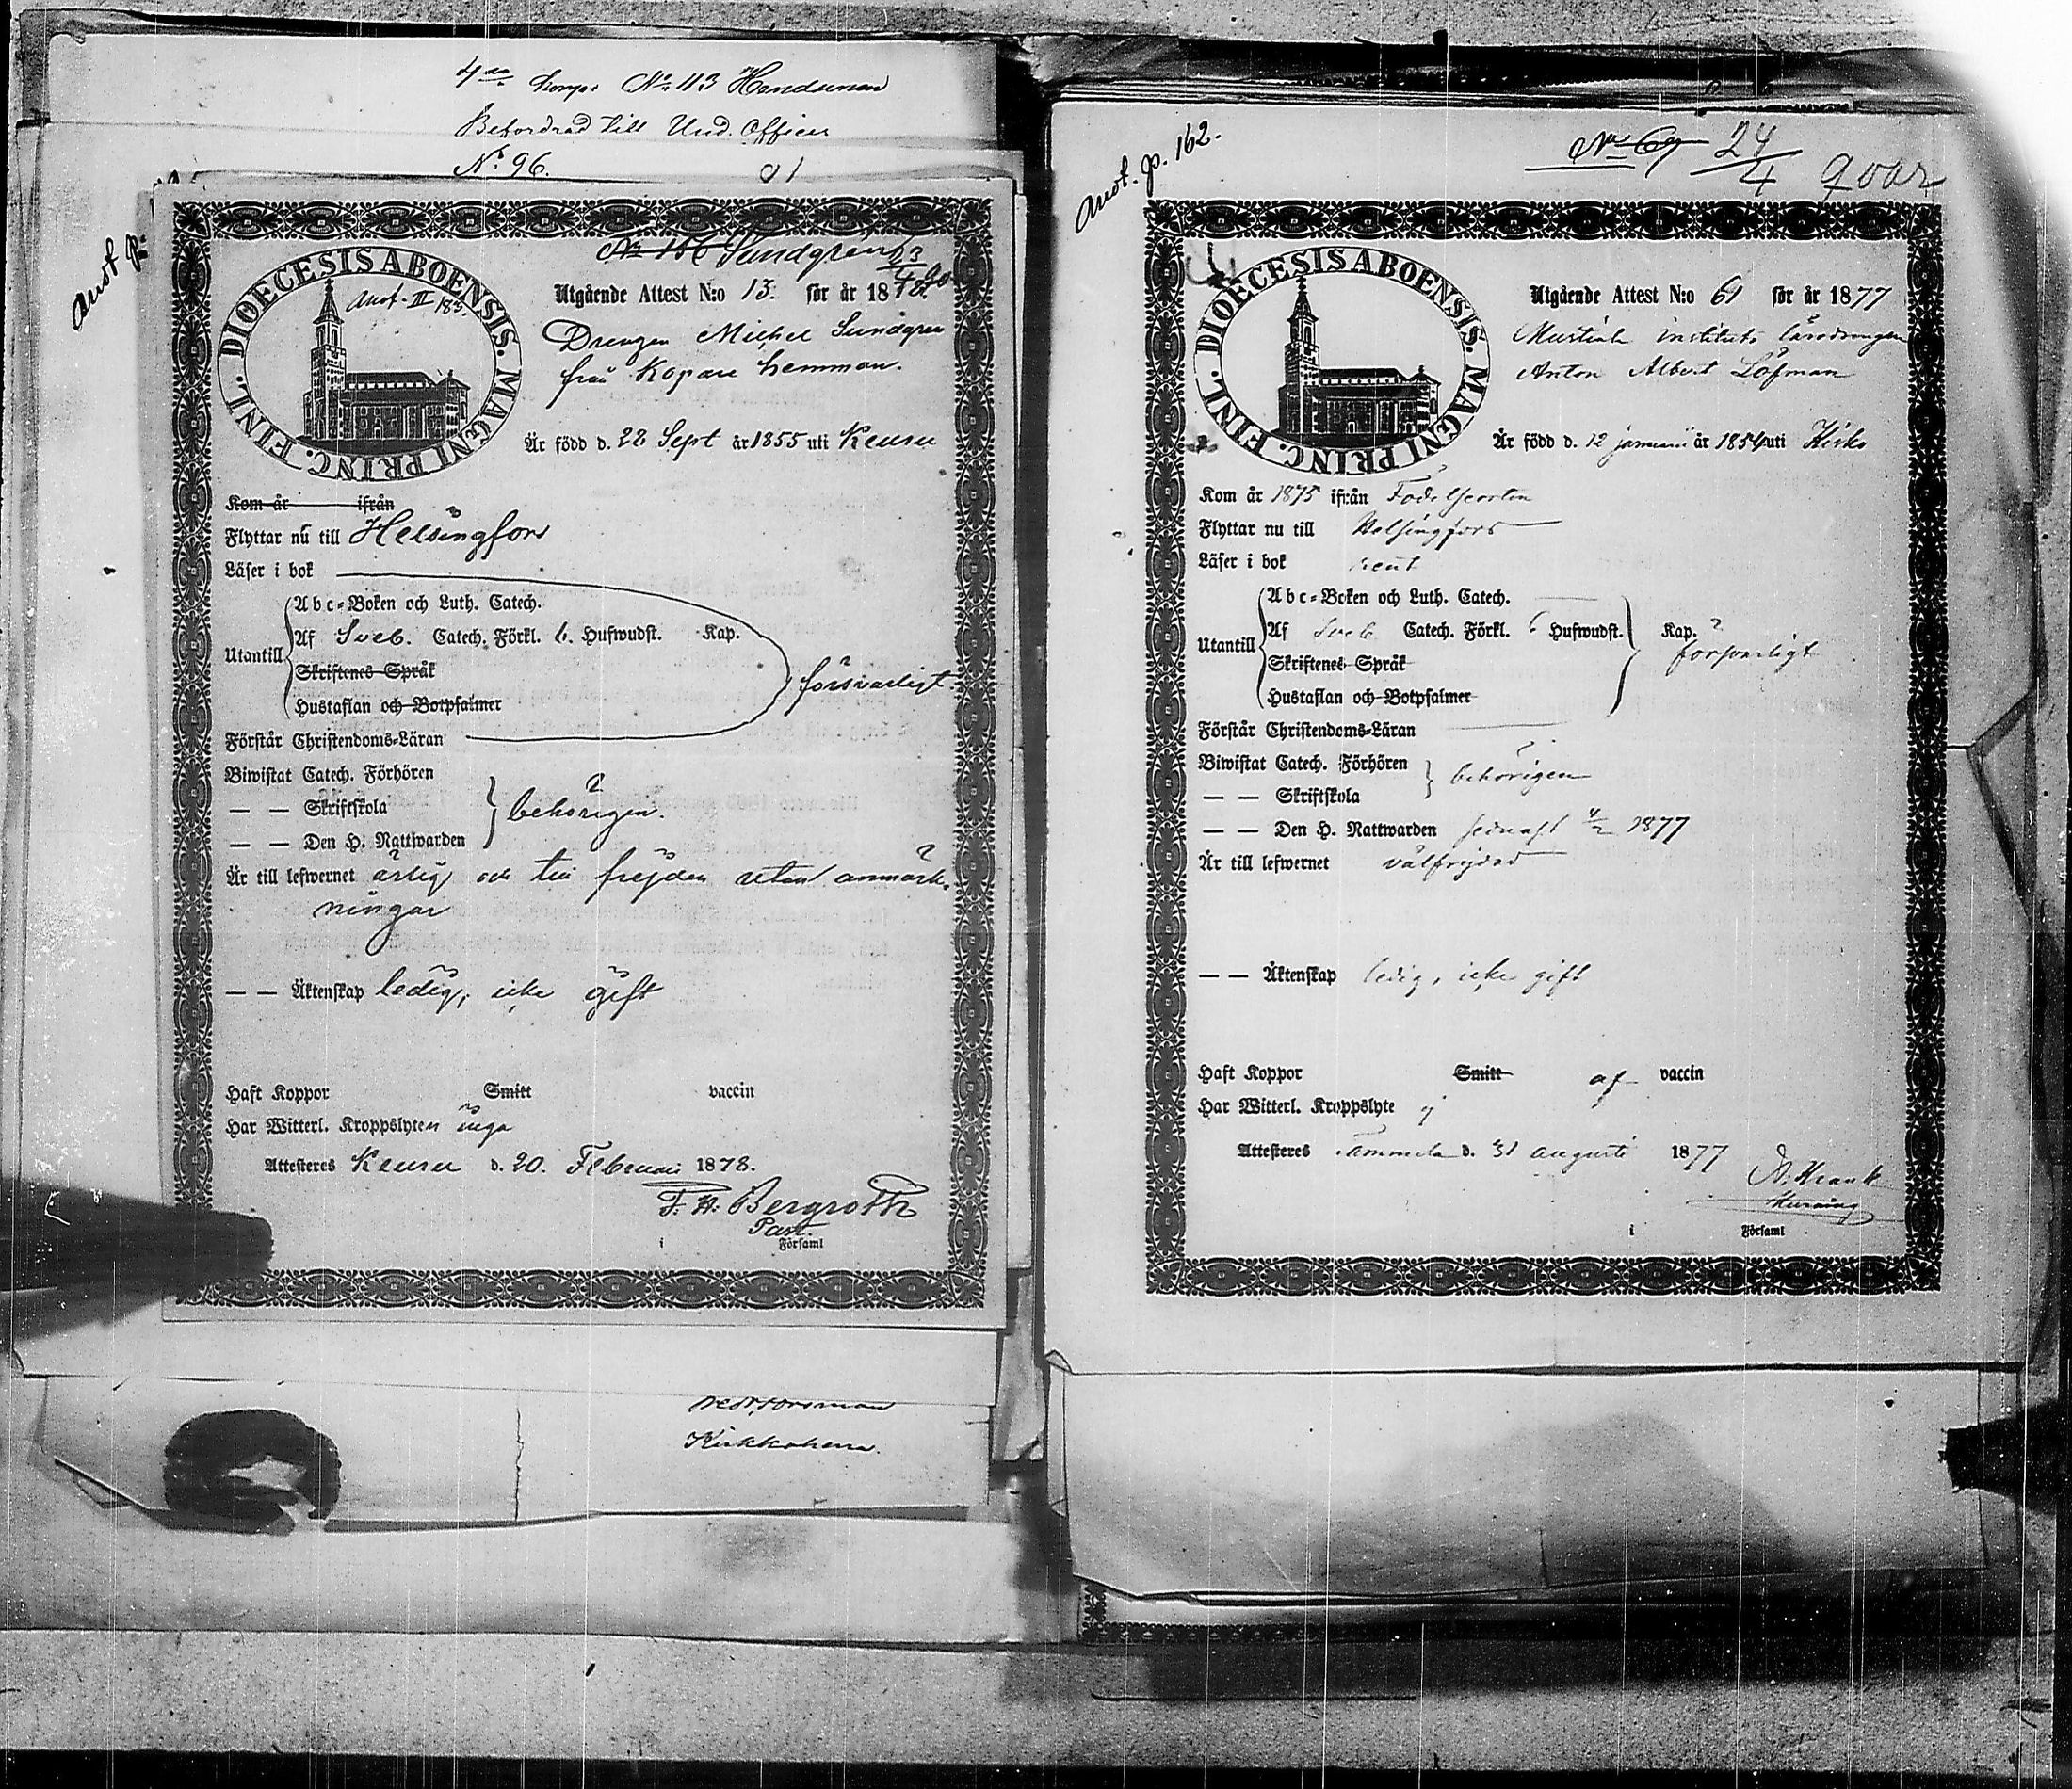 4de Komp: No 113 Handsman
Befordrad till Und. Officer
No. 96.
Anot. p.
No 156 Sundgrén
DIOECESIS ABOENSIS. MAGNI PRINC. FINL.
Anot. III 185.
Utgående Attest N:o 13. för år 1878.
Drengen Michel Sundgren
från Kopare hemman.
Är född d. 22 Sept år 1855 uti Keuru
Kom år ifrån
Flyttar nu till Helsingfors
Läser i bok
Abc-Boken och Luth. Catech.
Utantill
Af Sveb. Catech. Förkl. 6. Hufwudst. Kap.
Skriftenes Språk
Hustaflan och Botpsalmer
försvarligt.
Förstår Christendoms-Läran
Biwistat Catech. Förhören
— — Skriftskola
— — Den H. Nattwarden
behörigen.
Är till lefwernet ärlig och till frejden utan anmärk-
ningar
— — Äktenskap ledig, icke gift
Haft Koppor Smitt vaccin
Har Witterl. Kroppslyten inga
Attesteres Keuru d. 20. Februari 1878.
F. H. Bergroth
Past.
i Församl
Kirkkoherra.
Anot. p. 162.
No 69 24/4 qvar
DIOECESIS ABOENSIS. MAGNI PRINC. FINL.
Utgående Attest N:o 61 för år 1877
Mustiala instituts lärodrengen
Anton Albert Löfman
Är född d. 12 januarii år 1854 uti Kisko
Kom år 1875 ifrån Födelseorten
Flyttar nu till Helsingfors
Läser i bok rent
Abc-Boken och Luth. Catech.
Utantill
Af Sveb. Catech. Förkl. 6 Hufwudst. Kap.
försvarligt
Skriftenes Språk
Hustaflan och Botpsalmer
Förstår Christendoms-Läran
Biwistat Catech. Förhören
behörigen
— — Skriftskola
— — Den H. Nattwarden senast 4/2 1877
Är till lefwernet välfrejdad
— — Äktenskap ledig, icke gift
Haft Koppor Smitt af vaccin
Har Witterl. Kroppslyte ej
Attesteres Tammela d. 31 augusti 1877
i Församl